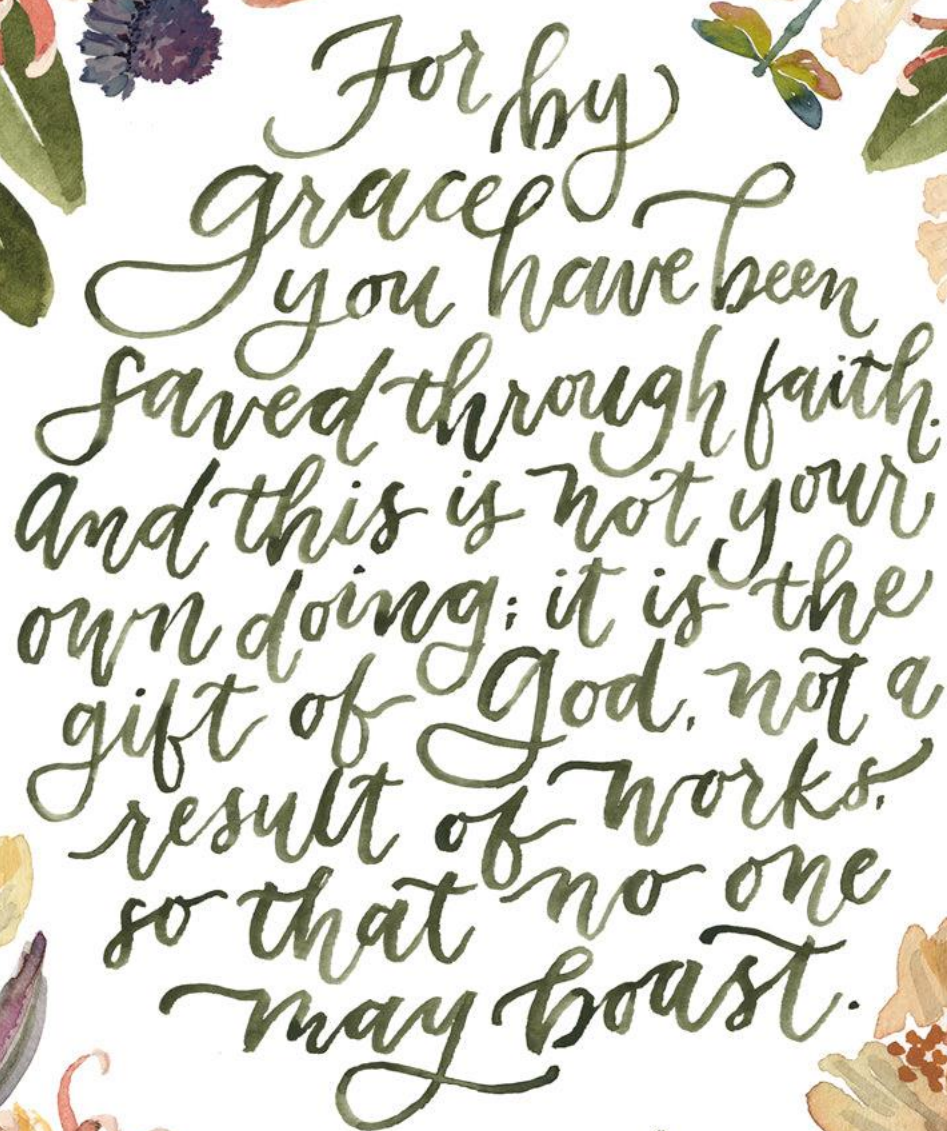 For by
grace
you have been
saved through faith.
And this is not your
own doing; it is the
gift of God, not a
result of works,
so that no one
may boast.